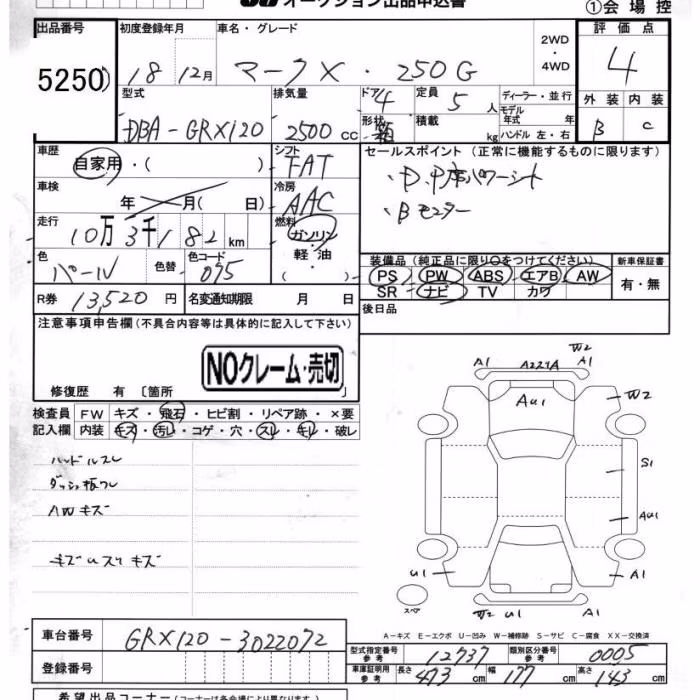 オークション出品申込書
①会場控
出品番号 初度登録年月 車名・グレード 評価点
5250 18 12月 マークX・250G 2WD・4WD 4
型式 排気量 ドア 4 定員 5人 ディーラー・並行 外装 内装
DBA-GRX120 2500cc 形状 箱 積載 kg モデル年式 年 B C
ハンドル 左・右
車歴 自家用・( ) シフト FAT セールスポイント (正常に機能するものに限ります)
車検 年 月( 日) 冷房 AAC ・D.P席パワーシート
走行 10万3千182km 燃料 ガソリン・軽油・( ) ・Bモニター
色 パール 色替 色コード 075 装備品(純正品に限り○をつけてください) 新車保証書
PS PW ABS エアB AW 有・無
SR ナビ TV カワ
R券 13,520円 名変通知期限 月 日 後日品
注意事項申告欄(不具合内容等は具体的に記入して下さい)
NOクレーム・売切
修復歴 有 〔箇所 〕
検査員 FW キズ・飛石・ヒビ割・リペア跡・×要
記入欄 内装 キズ・汚れ・コゲ・穴・スレ・キレ・破レ
ハンドルスレ
AWキズ
W2
A1 A224A A1
AU1 W2
S1
AU1
U1 A1
スペア
W2 U1 A1
A-キズ E-エクボ U-凹み W-補修跡 S-サビ C-腐食 XX-交換済
車台番号 GRX120-3022072
型式指定番号 参考 12737 類別区分番号 参考 0005
登録番号 車庫証明用 参考 長さ 473cm 幅 177cm 高さ 143cm
希望出品コーナー(コーナーは各会場により異なります)